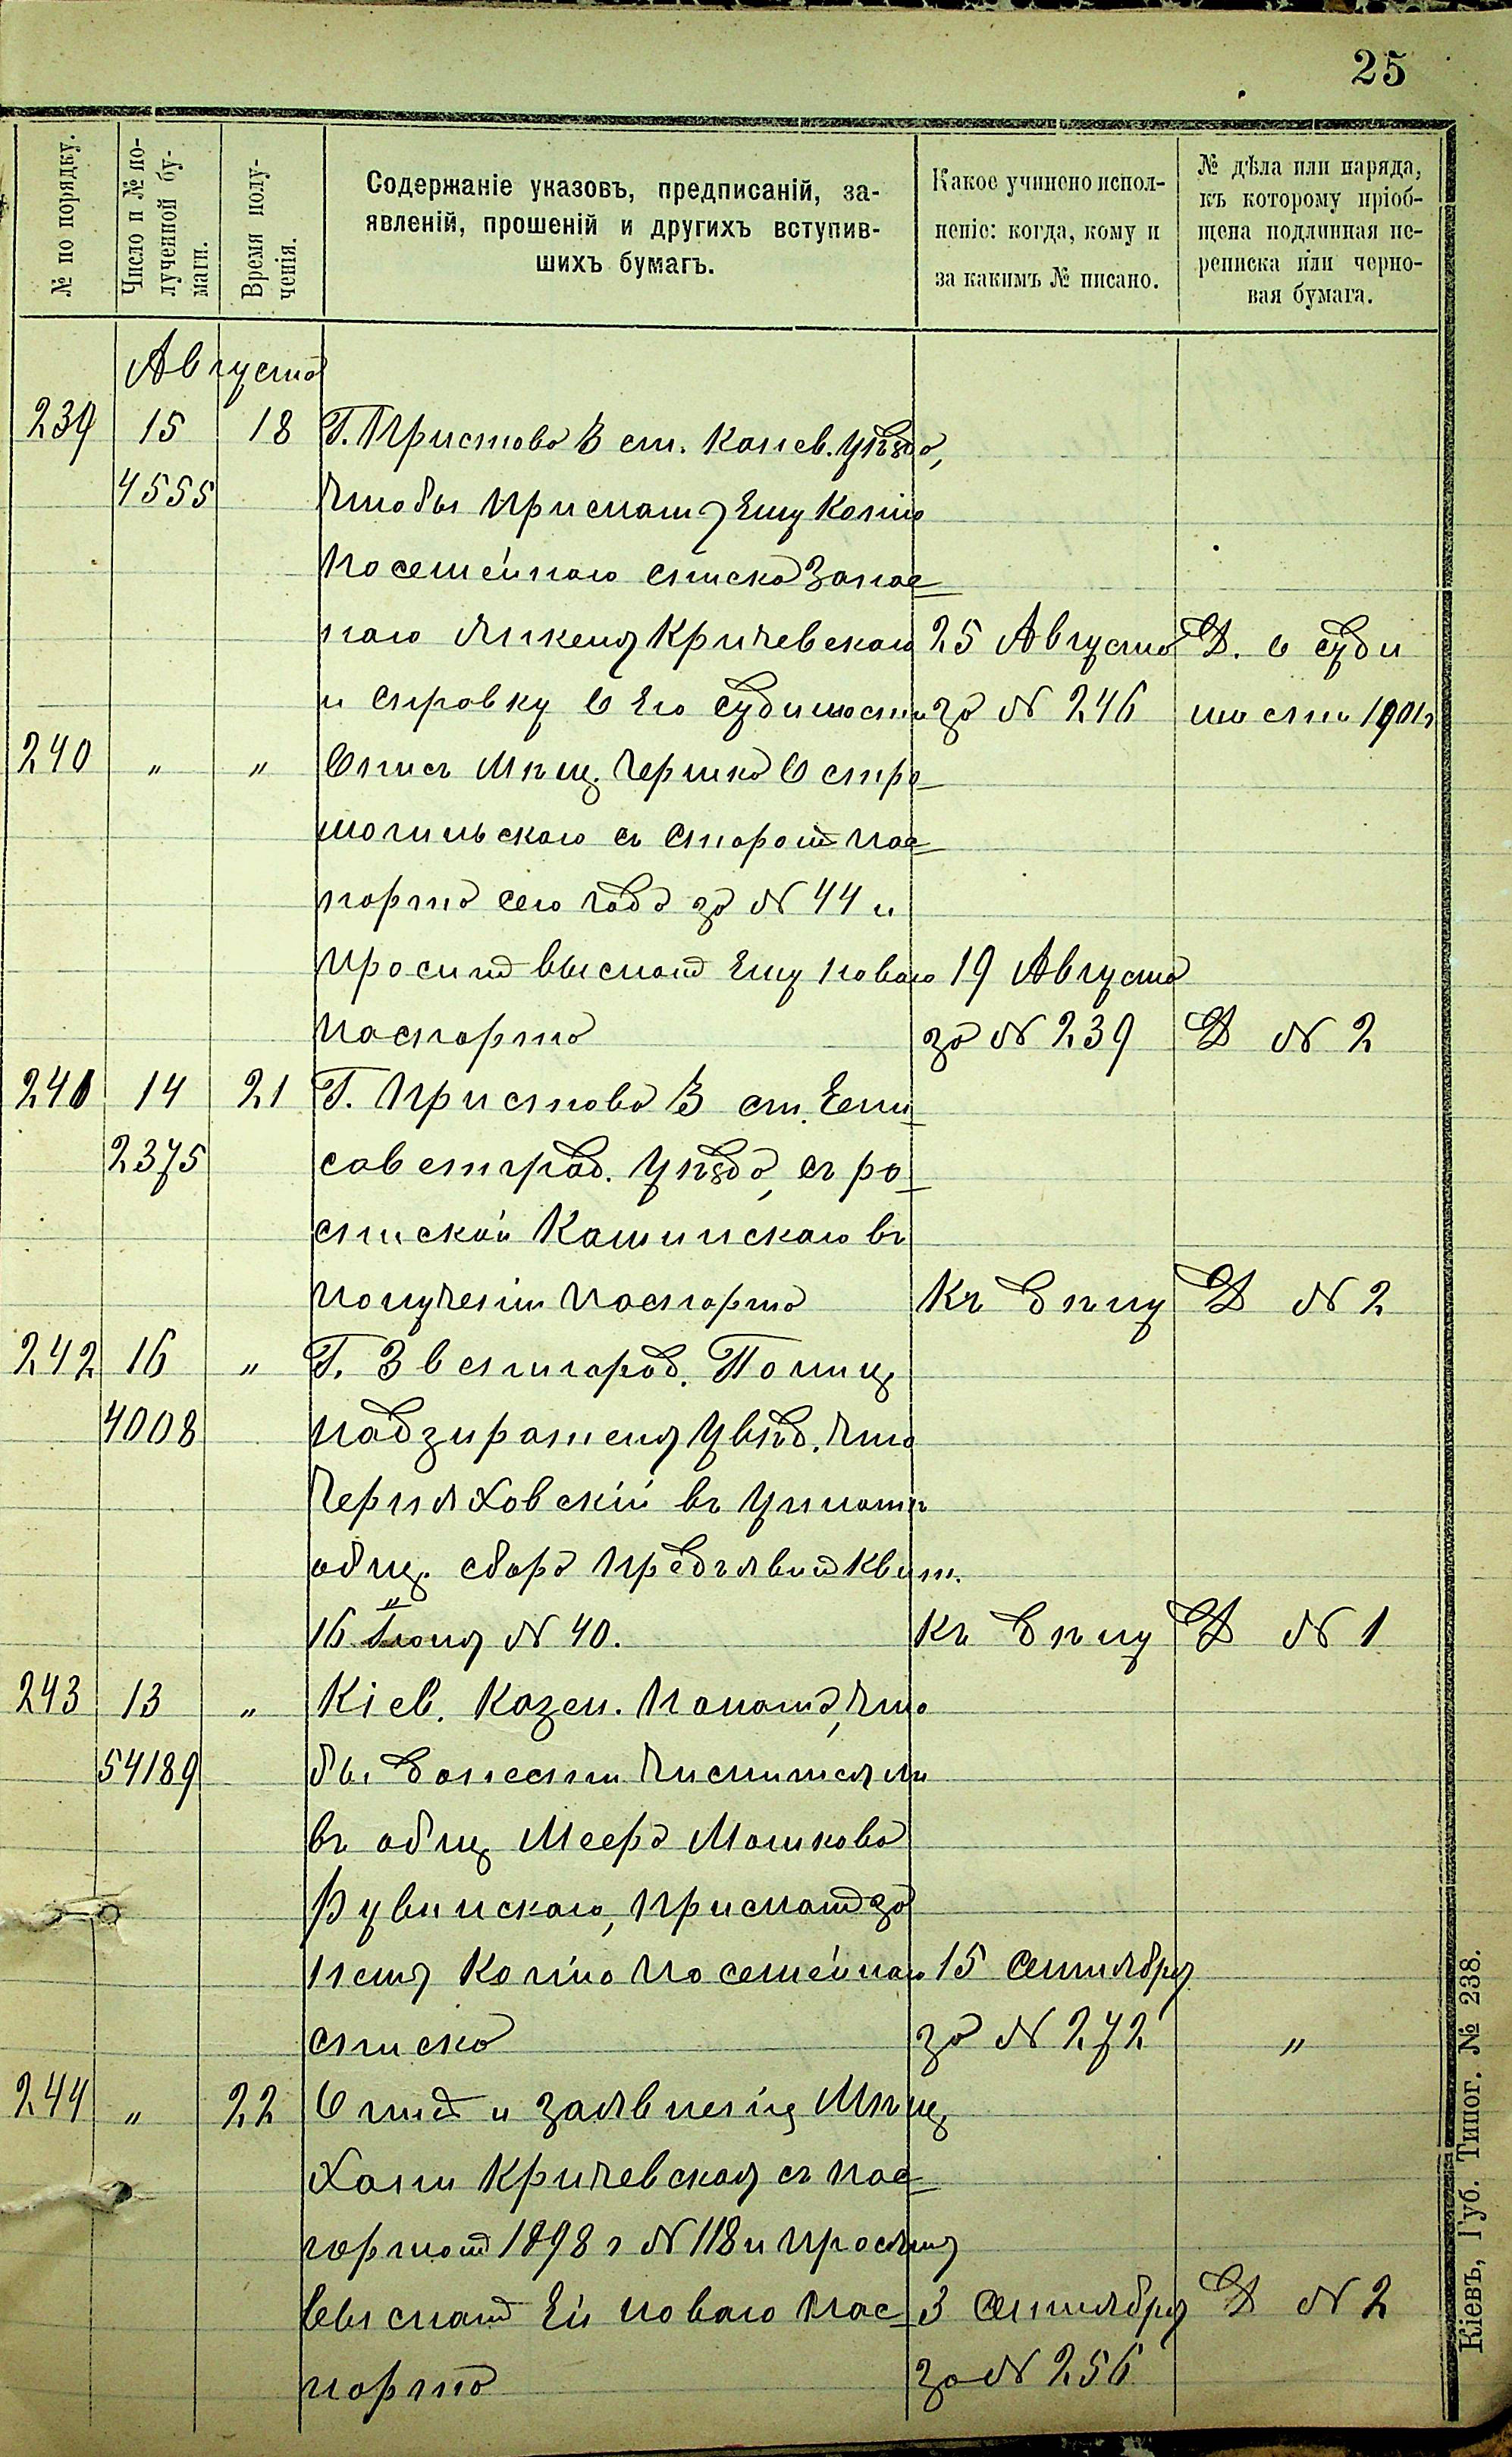 25
№ по порядку.
Число и № по-
лученной бу-
маги.
Время полу-
ченія.
Содержаніе указовъ, предписаній, за-
явленій, прошеній и другихъ вступив-
шихъ бумагъ.
Какое учинено испол-
неніе: когда, кому и
за какимъ № писано.
№ дѣла или наряда,
къ которому пріоб-
щена подлинная пе-
реписка или черно-
вая бумага.
Августа
239 15 18 Г. Пристава 3 ст. Канев. уѣзда,
4555 чтобы прислать ему копію
посемейнаго списка запас-
наго Кричевскаго 25 Августа Д. о суди
и справку о его судимости за № 246 мости 1901 г
240 " " Отпись мѣщ. Остро
могильскаго съ старой пас-
порта сего года за № 44 и
проситъ выслать ему новаго 19 Августа
паспорта за № 239 Д № 2
241 14 21 Г. Пристава 3 ст. Ели-
2375 саветград. уѣзда, съ ро-
спиской Кашинскаго въ
полученіи паспорта Къ дѣлу Д № 2
242 16 " Г. Звенигород. Полиц
4008 надзирателя увѣд. что
Черняховскій въ уплатѣ
общ. сбора предъявилъ квит.
16 Іюня № 40. Къ дѣлу Д № 1
243 13 " Кіев. Казен. Палата, что
54189 бы донести числится ли
въ общ Меера Мошкова
Рувинскаго, прислать за
нетя копію посемейнаго 15 Сентября
списка за № 272 "
244 " 22 Опись и заявленія Мѣщ
Хаи Кричевская съ пас-
портомъ 1898 г № 118 и проситъ
выслать ей новаго пас- 3 Сентября Д № 2
порта за № 256
Кіевъ, Губ. Типог. № 238.